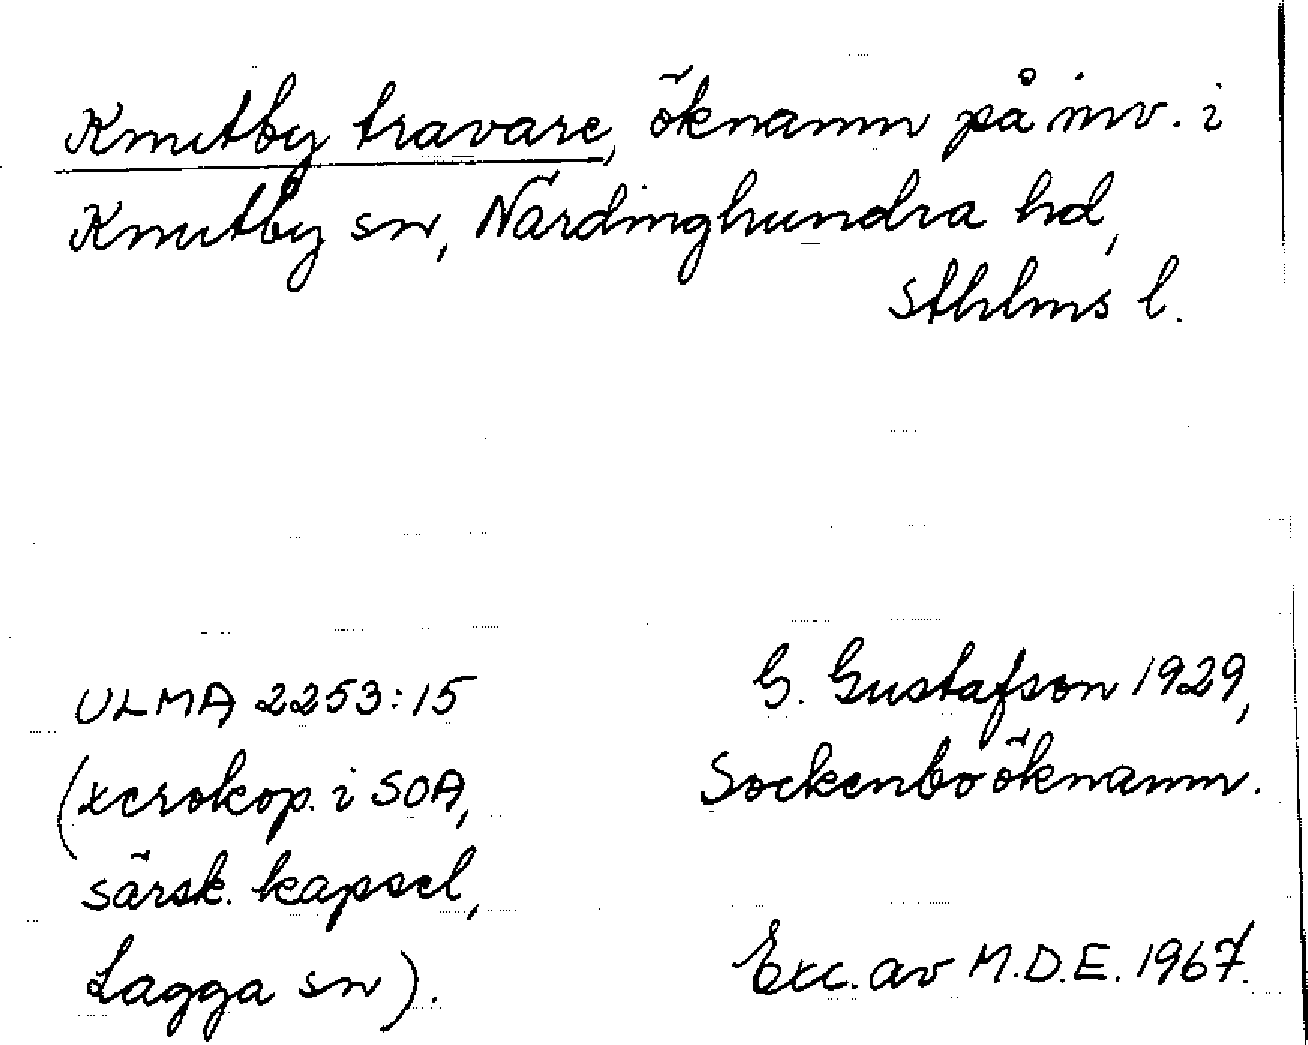 Knutby travare, öknamn på inv. i
Knutby sn, Närdinghundra hd,
Sthlms l.
ULMA 2253:15
(xerokop. i SOA,
särsk. kapsel,
Lagga sn).
G. Gustafson 1929,
Sockenboöknamn.
Exc. av M.D.E. 1967.